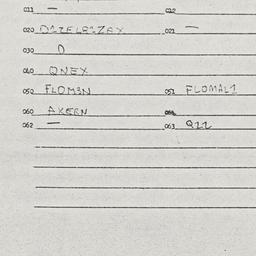 011 — 012
020 D1ZELA1ZEX 021 —
030 D
040 QNEX
050 FLOM3N 051 FLOMAL1
060 AKERN
062 — 063 922